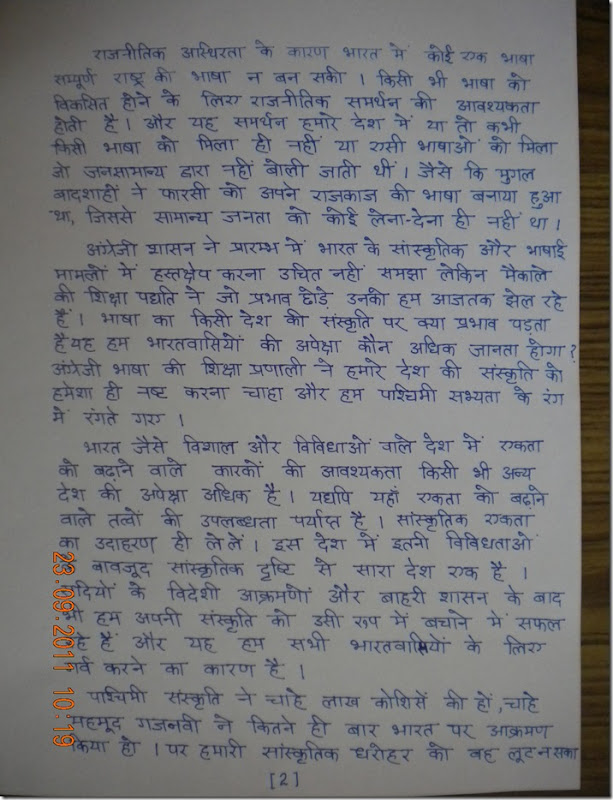 राजनीतिक अस्थिरता के कारण भारत में कोई एक भाषा
सम्पूर्ण राष्ट्र की भाषा न बन सकी । किसी भी भाषा को
विकसित होने के लिए राजनीतिक समर्थन की आवश्यकता
होती है । और यह समर्थन हमारे देश में या तो कभी
किसी भाषा को मिला ही नहीं या एसी भाषाओं को मिला
जो जनसामान्य द्वारा नहीं बोली जाती थीं । जैसे कि मुगल
बादशाहों ने फारसी को अपने राजकाज की भाषा बनाया हुआ
था, जिससे सामान्य जनता को कोई लेना-देना ही नहीं था ।
अंग्रेजी शासन ने प्रारम्भ में भारत के सांस्कृतिक और भाषाई
मामलों में हस्तक्षेप करना उचित नहीं समझा लेकिन मैकाले
की शिक्षा पद्यति ने जो प्रभाव छोड़े उनको हम आजतक झेल रहे
हैं । भाषा का किसी देश की संस्कृति पर क्या प्रभाव पड़ता
है यह हम भारतवासियों की अपेक्षा कौन अधिक जानता होगा ?
अंग्रेजी भाषा की शिक्षा प्रणाली ने हमारे देश की संस्कृति को
हमेशा ही नष्ट करना चाहा और हम पाश्चिमी सभ्यता के रंग
में रंगते गए ।
भारत जैसे विशाल और विविधाओं वाले देश में एकता
को बढ़ाने वाले कारकों की आवश्यकता किसी भी अन्य
देश की अपेक्षा अधिक है । यद्यपि यहाँ एकता को बढ़ाने
वाले तत्वों की उपलब्धता पर्याप्त है । सांस्कृतिक एकता
का उदाहरण ही ले लें । इस देश में इतनी विविधताओं
बावजूद सांस्कृतिक दृष्टि से सारा देश एक है ।
सदियों के विदेशी आक्रमणों और बाहरी शासन के बाद
भी हम अपनी संस्कृति को उसी रूप में बचाने में सफल
रहे हैं और यह हम सभी भारतवासियों के लिए
गर्व करने का कारण है ।
पाश्चिमी संस्कृति ने चाहे लाख कोशिसें की हों, चाहे
महमूद गजनवी ने कितने ही बार भारत पर आक्रमण
किया हो । पर हमारी सांस्कृतिक धरोहर को वह लूट न सका
[2]
23.09.2011 10:19